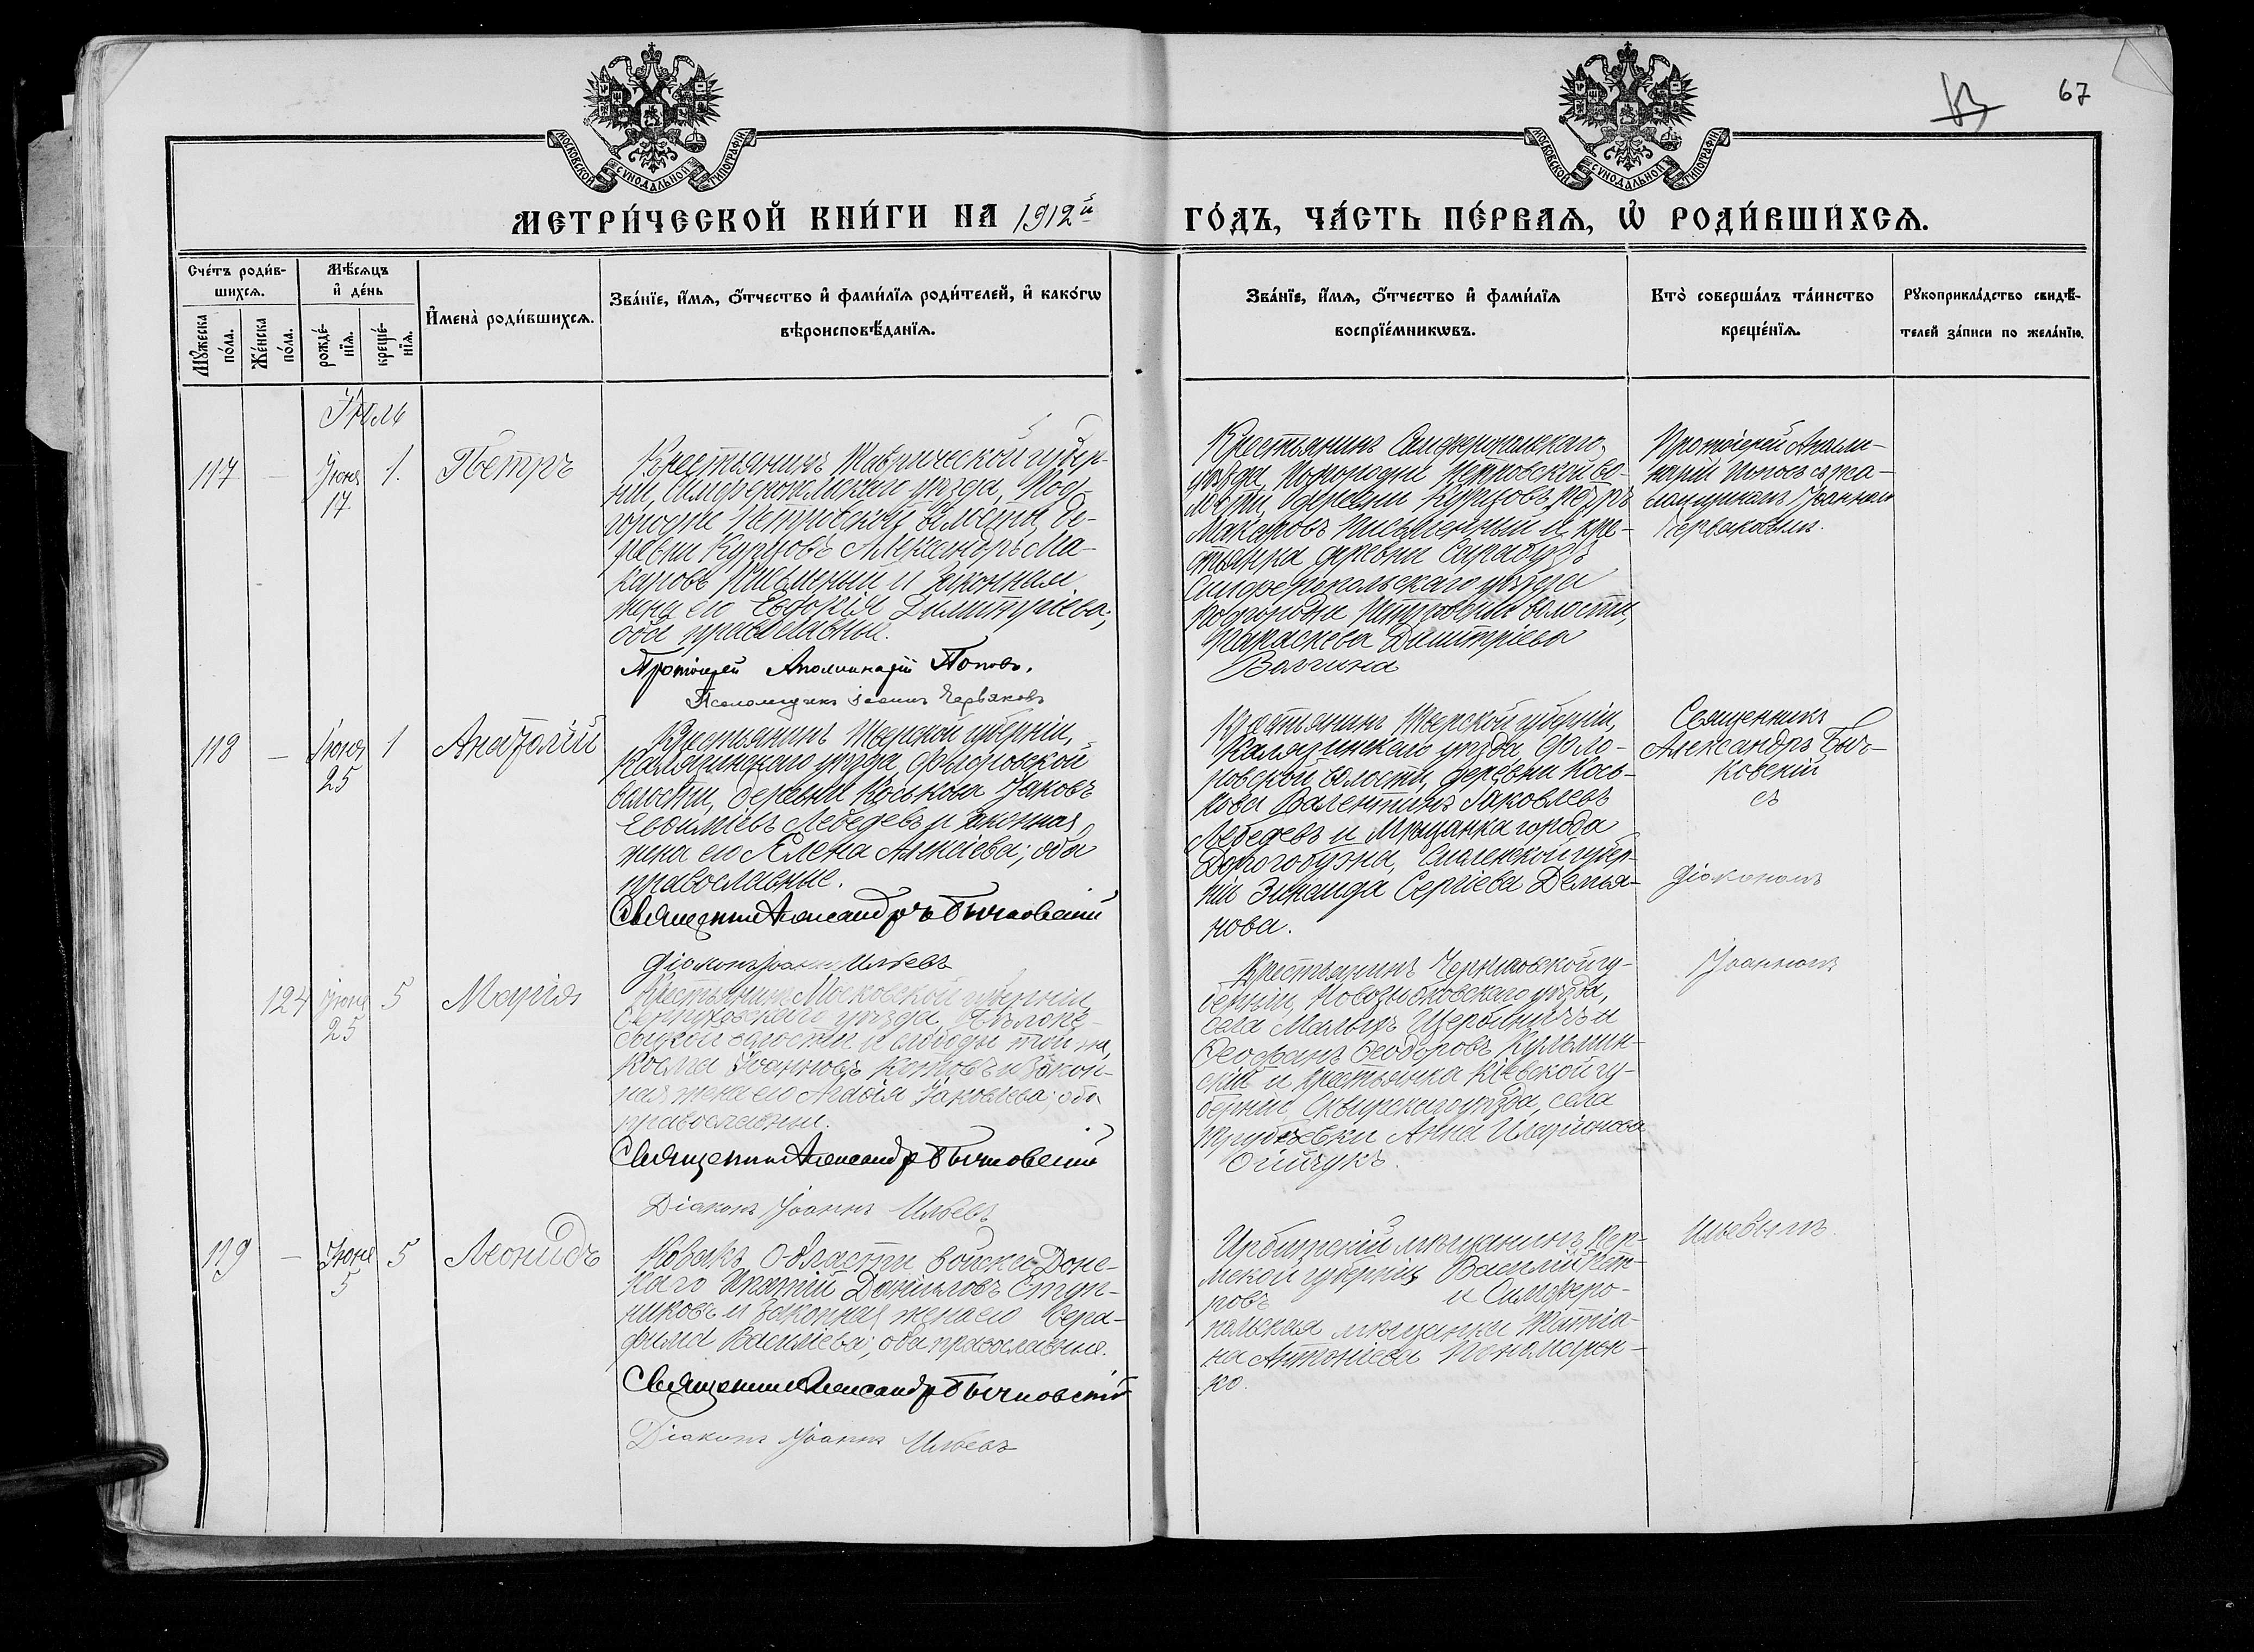 67
МОСКОВСКОЙ СУНОДАЛЬНОЙ ТИПОГРАФІИ
МОСКОВСКОЙ СУНОДАЛЬНОЙ ТИПОГРАФІИ
МЕТРИ́ЧЕСКОЙ КНИ́ГИ НА 1912й
ГО́ДЪ, ЧА́СТЬ ПЕ́РВАѦ, Ѡ҆ РОДИ́ВШИХСѦ.
Сче́тъ роди́в-
шихсѧ.
Мꙋ́жеска по́ла.
Же́нска по́ла.
Мѣ́сѧцъ
и҆ де́нь
рожде́-
нїѧ.
креще́-
нїѧ.
И҆мена̀ роди́вшихсѧ.
Зва́нїе, и҆́мѧ, ѻ҆́тчество и҆ фами́лїѧ роди́телей, и҆ како́гѡ
вѣроисповѣ́данїѧ.
Зва́нїе, и҆́мѧ, ѻ҆́тчество и҆ фами́лїѧ
воспрїе́мникѡвъ.
Кто̀ соверша́лъ та́инство
креще́нїѧ.
Рꙋкоприкла́дство свидѣ́-
телей за́писи по жела́нїю.
Іюль
117
—
Іюня
17
1.
Петръ
Крестьянинъ Таврической губер-
ніи, Симферопольскаго уѣзда, Под-
городне Петровской волости, де-
ревни Курцовъ Александръ Ма-
каровъ Письменный и законная
жена его Евдокія Димитріева;
оба православные.
Протоіерей Аполлинарій Поповъ.
Псаломщикъ Іоаннъ Червяковъ
Крестьянинъ Симферопольскаго
уѣзда, Подгородне Петровской во-
лости, деревни Курцовъ Петръ
Макаровъ Письменный и кре-
стьянка деревни Сарабузъ
Симферопольскаго уѣзда
Подгородне Петровской волости,
Параскева Димитріева
Протоіерей Аполли-
нарій Поповъ съ пса-
ломщикомъ Іоанномъ
Червяковымъ.
118
—
Іюня
25
1
Анатолій
Крестьянинъ Тверской губерніи,
Калязинскаго уѣзда,
волости, деревни Коськова Іаковъ
Евфиміевъ Лебедевъ и законная
жена его Елена Алексіева; оба
православные.
Священникъ Александръ Бычковскій
Діаконъ Іоаннъ Ильевъ
Крестьянинъ Тверской губерніи,
Калязинскаго уѣзда,
волости, деревни Кось-
кова Валентинъ Іаковлевъ
Лебедевъ и мѣщанка города
Дорогобужа, Смоленской губер-
ніи Зинаида Сергіева Демья-
нова.
Священникъ
Александръ Быч-
ковскій
съ
діакономъ
124
Іюня
25
5
Марія
Крестьянинъ Московской губерніи,
Серпуховскаго уѣзда,
волости и слободы той же,
Косма Іоанновъ Котовъ и закон-
ная жена его Агафія Іаковлева; оба
православные.
Священникъ Александръ Бычковскій
Діаконъ Іоаннъ Ильевъ
Крестьянинъ Черниговской гу-
берніи, Новозыбковскаго уѣзда,
села Малыхъ Щербиничъ
Феофанъ Феодоровъ Кульмин-
скій и крестьянка Кіевской гу-
берніи Сквирскаго уѣзда, села
Трубѣевки Анна Иларіонова
Іоанномъ
119
—
Іюня
5
5
Леонидъ
Козакъ Области войска Дон-
скаго Игнатій Даніиловъ Ступ-
никовъ и законная жена его Сера-
фима Васильева; оба православные.
Священникъ Александръ Бычковскій
Діаконъ Іоаннъ Ильевъ
Ирбитскій мѣщанинъ, Пер-
мской губерніи Василій Пет-
ровъ и Симферо-
польская мѣщанка Татіа-
на Антоніева Пономарен-
ко.
Ильевымъ.